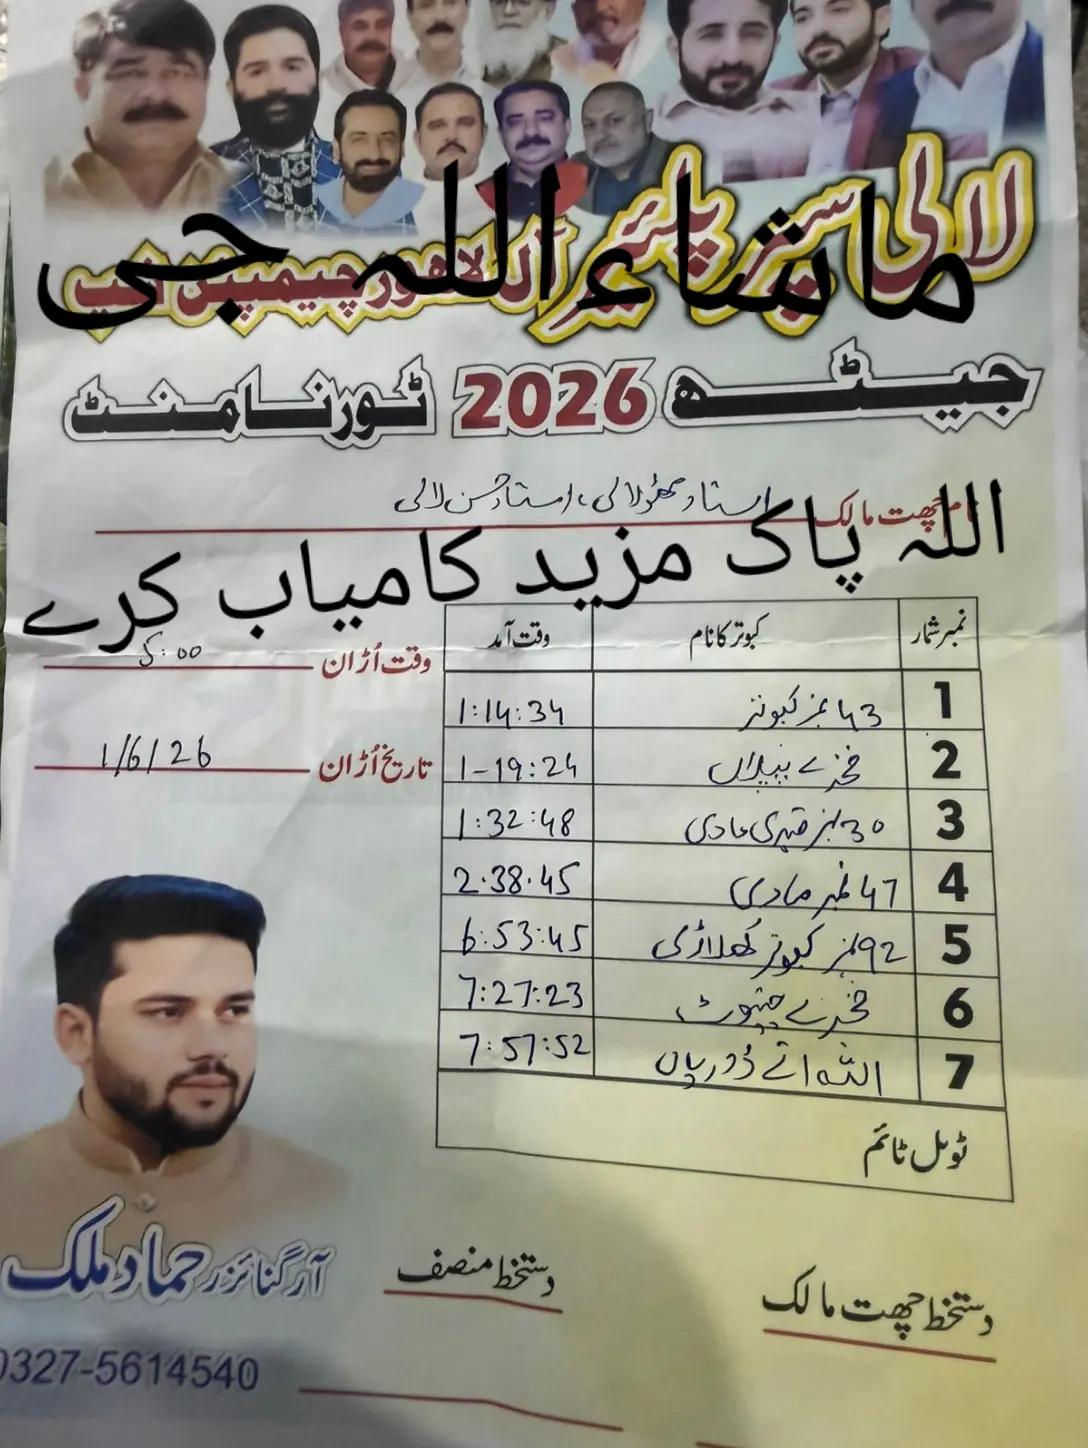 لالی سپر پلیئر آل لاہور چیمپئن شپ
ماشاء اللہ جی
جیٹھ 2026 ٹورنامنٹ
نام چھت مالک استاد بھولا لالی، استاد حسن لالی
اللہ پاک مزید کامیاب کرے
وقت اُڑان 5:00
تاریخ اُڑان 1/6/26
نمبر شمار کبوتر کا نام وقت آمد
1 43 نمبر کبوتر 1:14:34
2 1-19:24
3 30 نمبر 1:32:48
4 47 نمبر مادی 2:38:45
5 92 نمبر کبوتر کھلاڑی 6:53:45
6 7:27:23
7 7:57:52
ٹوٹل ٹائم
آرگنائزر حماد ملک
دستخط منصف
دستخط چھت مالک
0327-5614540